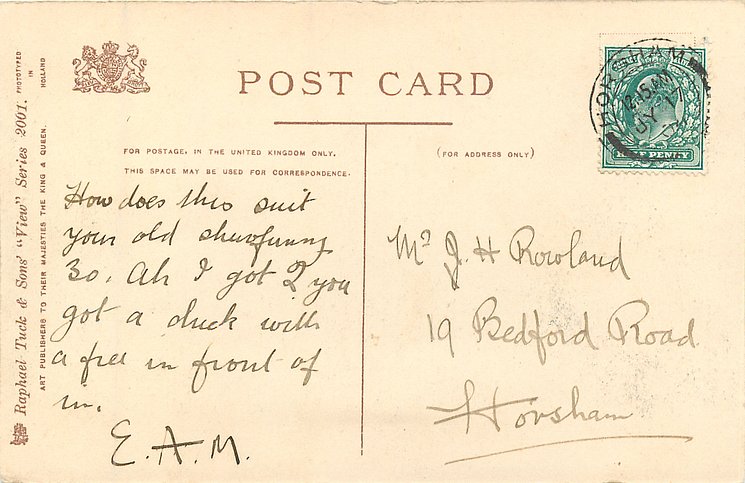 POST CARD
FOR POSTAGE, IN THE UNITED KINGDOM ONLY.
THIS SPACE MAY BE USED FOR CORRESPONDENCE.
(FOR ADDRESS ONLY)
How does this suit
your old
30. Ah I got 2 you
got a duck with
a in front of
in.
E.A.M.
Mr J. H Rowland
19 Bedford Road
Horsham
HORSHAM
12.15 AM
JY 17
HALF PENNY
Raphael Tuck & Sons' "View" Series 2001.
ART PUBLISHERS TO THEIR MAJESTIES THE KING & QUEEN.
PHOTOTYPED
IN
HOLLAND